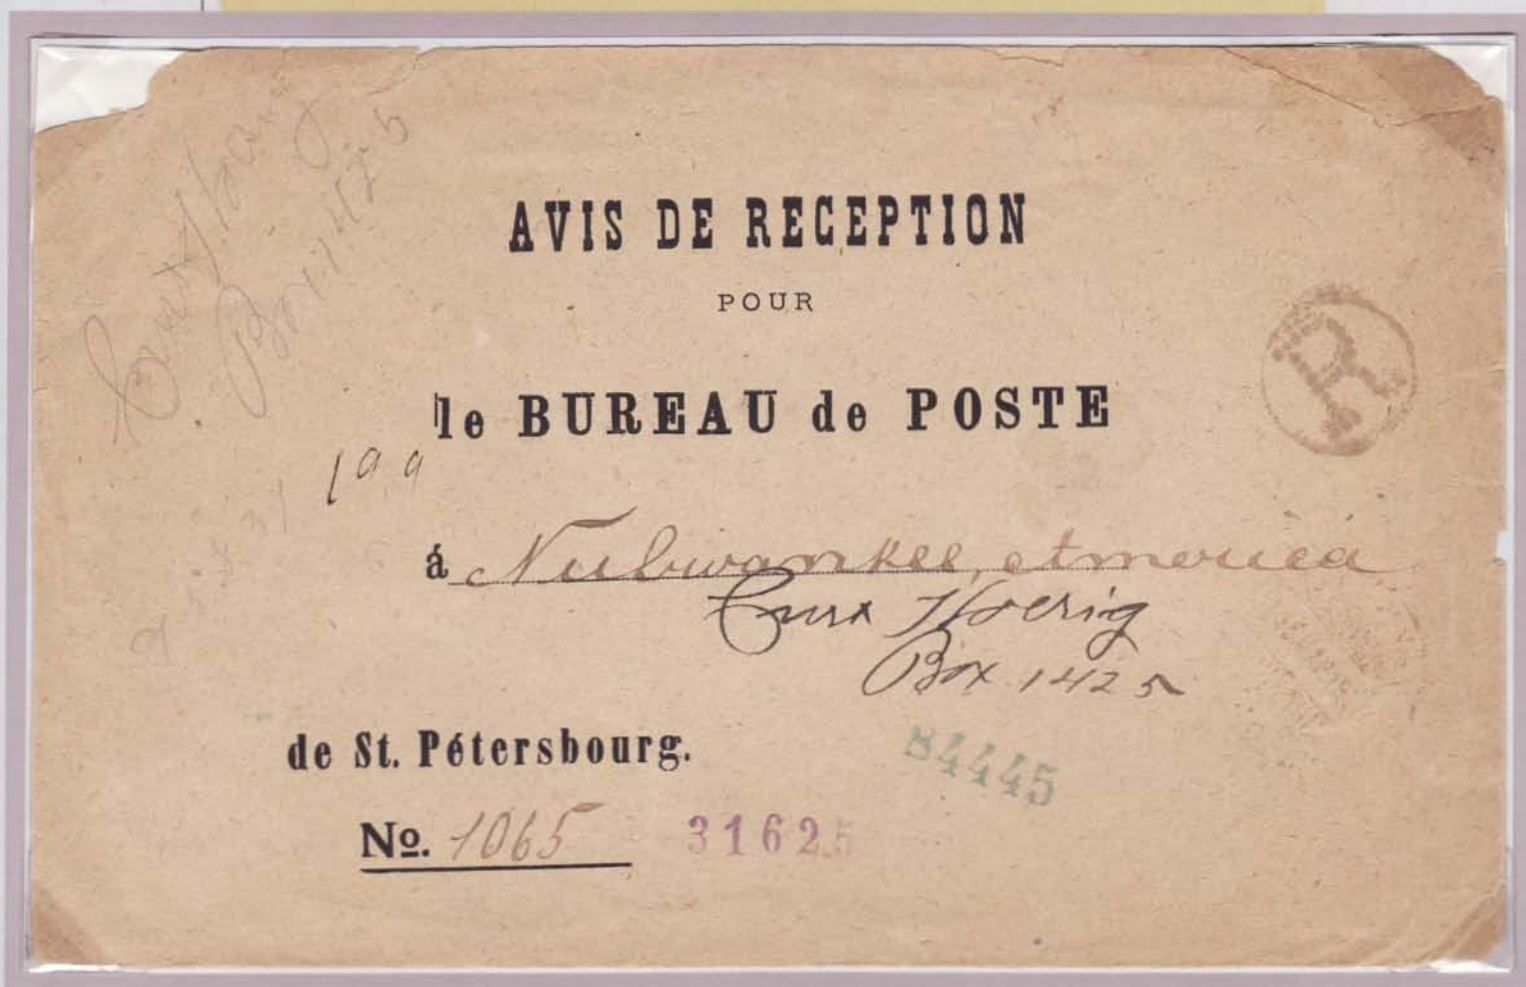 AVIS DE RECEPTION
POUR
R
le BUREAU de POSTE
á Nubwankee, America
Curt Hoerig
Box 1425
de St. Pétersbourg.
84445
No. 1065 31625
Box 1425